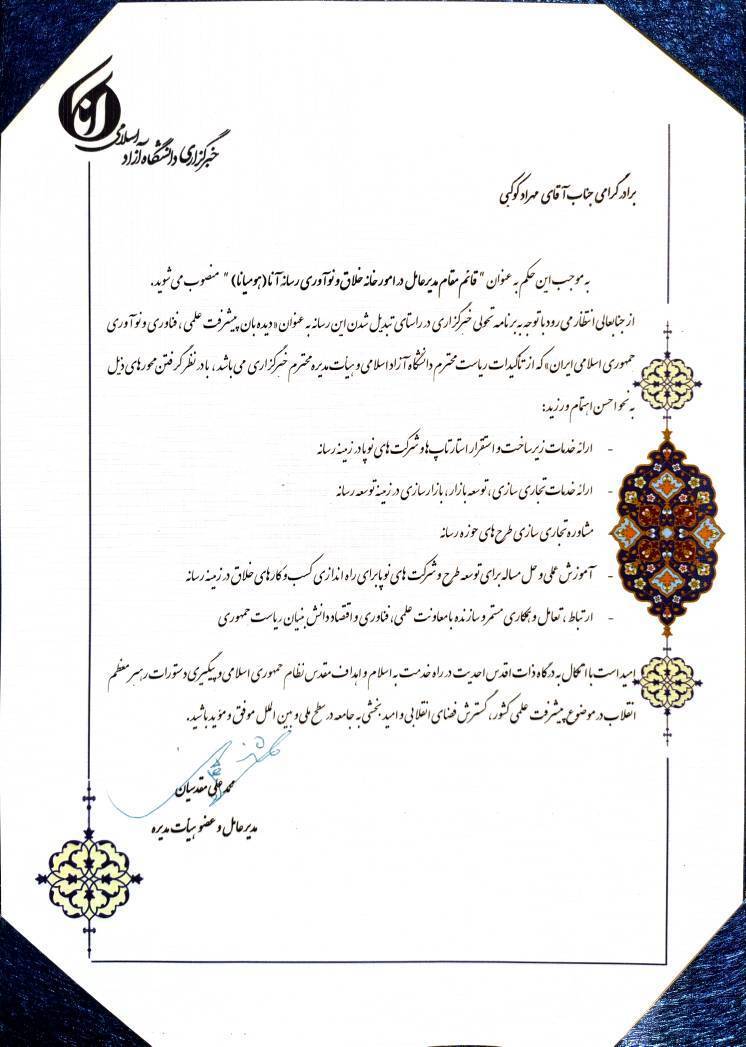 آنا
خبرگزاری دانشگاه آزاد اسلامی
برادر گرامی جناب آقای مهراد کوکبی
به موجب این حکم به عنوان " قائم مقام مدیرعامل در امور خانه خلاق و نوآوری رسانه آنا (هومیانا) " منصوب می شوید.
از جنابعالی انتظار می رود با توجه به برنامه تحولی خبرگزاری در راستای تبدیل شدن این رسانه به عنوان «دیده بان پیشرفت علمی، فناوری و نوآوری
جمهوری اسلامی ایران» که از تاکیدات ریاست محترم دانشگاه آزاد اسلامی و هیأت مدیره محترم خبرگزاری می باشد، با در نظر گرفتن محورهای ذیل
به نحو احسن اهتمام ورزید:
- ارائه خدمات زیرساخت و استقرار استارتاپ ها و شرکت های نوپا در زمینه رسانه
- ارائه خدمات تجاری سازی، توسعه بازار، بازارسازی در زمینه توسعه رسانه
مشاوره تجاری سازی طرح های حوزه رسانه
- آموزش عملی و حل مساله برای توسعه طرح و شرکت های نوپا برای راه اندازی کسب و کارهای خلاق در زمینه رسانه
- ارتباط، تعامل و همکاری مستمر و سازنده با معاونت علمی، فناوری و اقتصاد دانش بنیان ریاست جمهوری
امید است با اتکال به درگاه ذات اقدس احدیت در راه خدمت به اسلام و اهداف مقدس نظام جمهوری اسلامی و پیگیری دستورات رهبر معظم
انقلاب در موضوع پیشرفت علمی کشور، گسترش فضای انقلابی و امید بخشی به جامعه در سطح ملی و بین الملل موفق و مؤید باشید.
محمد علی مقدسیان
مدیرعامل و عضو هیأت مدیره